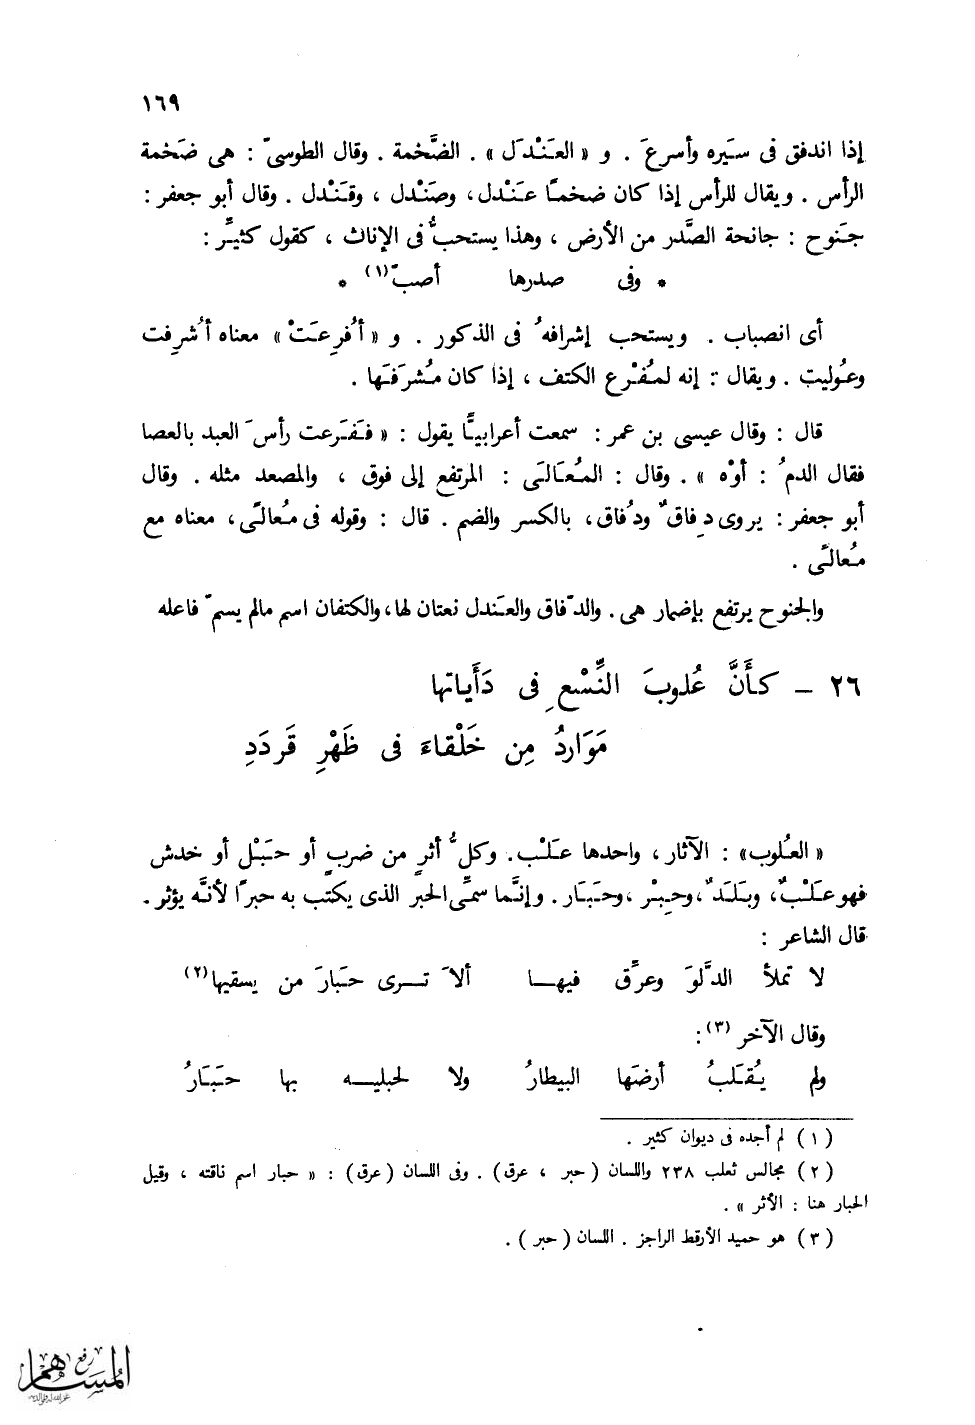 ١٦٩
إذا اندفق فى سَيره وأسرعَ . و « العَنْدَل » . الضَّخمة . وقال الطوسىّ : هى ضَخمة
الرأس . ويقال للرأس إذا كان ضخمًا عَنْدل، وصَنْدل ، وقَنْدل . وقال أبو جعفر :
جَنوح : جانحة الصَّدر من الأرض ، وهذا يستحبُّ فى الإناث ، كقول كثيِّر :
* وفى صدرها أصبّ(١) *
أى انصباب . ويستحب إشرافهُ فى الذكور . و « أُفرِعَتْ » معناه أُشرِفت
وعُوليت . ويقال : إنه لمُفْرع الكتف ، إذا كان مُشرَفَها .
قال : وقال عيسى بن عمر : سمعت أعرابيًّا يقول : « فَفَرَعت رأسَ العبد بالعصا
فقال الدمُ : أوْه » . وقال : المُعَالَى : المرتفع إلى فوق ، والمصعد مثله . وقال
أبو جعفر : يروى دِفاقٌ ودُفاق، بالكسر والضم . قال : وقوله فى مُعالًى، معناه مع
مُعالًى .
والجنوح يرتفع بإضمار هى . والدّفاق والعَندل نعتان لها، والكتفان اسم مالم يسمّ فاعله
٢٦ – كأَنَّ عُلوبَ النِّسْعِ فى دَأَياتها
مَوَارِدُ مِن خَلْقاءَ فى ظَهْرِ قَردَدِ
« العُلوب» : الآثار ، واحدها عَلْب. وكلُّ أثرٍ من ضربٍ أو حَبْل أو خدش
فهو عَلْبٌ، وبَلَدٌ ،وحِبِرْ ،وحَبَار . وإنَّما سمِّى الحبر الذى يكتب به حبرًا لأنَّه يؤثر .
قال الشاعر :
لا تملأ الدَّلوَ وعرِّق فيها ألاَ ترى حَبارَ من يسقيها(٢)
وقال الآخر (٣):
ولم يُقلَبُ أرضَها البيطارُ ولا لحبليه بها حَبَارُ
(١) لم أجده فى ديوان كثير .
(٢) مجالس ثعلب ٢٣٨ واللسان ( حبر ، عرق ) . وفى اللسان ( عرق ) : « حبار اسم ناقته ، وقيل
الحبار هنا : الأثر » .
(٣) هو حميد الأرقط الراجز . اللسان ( حبر ) .